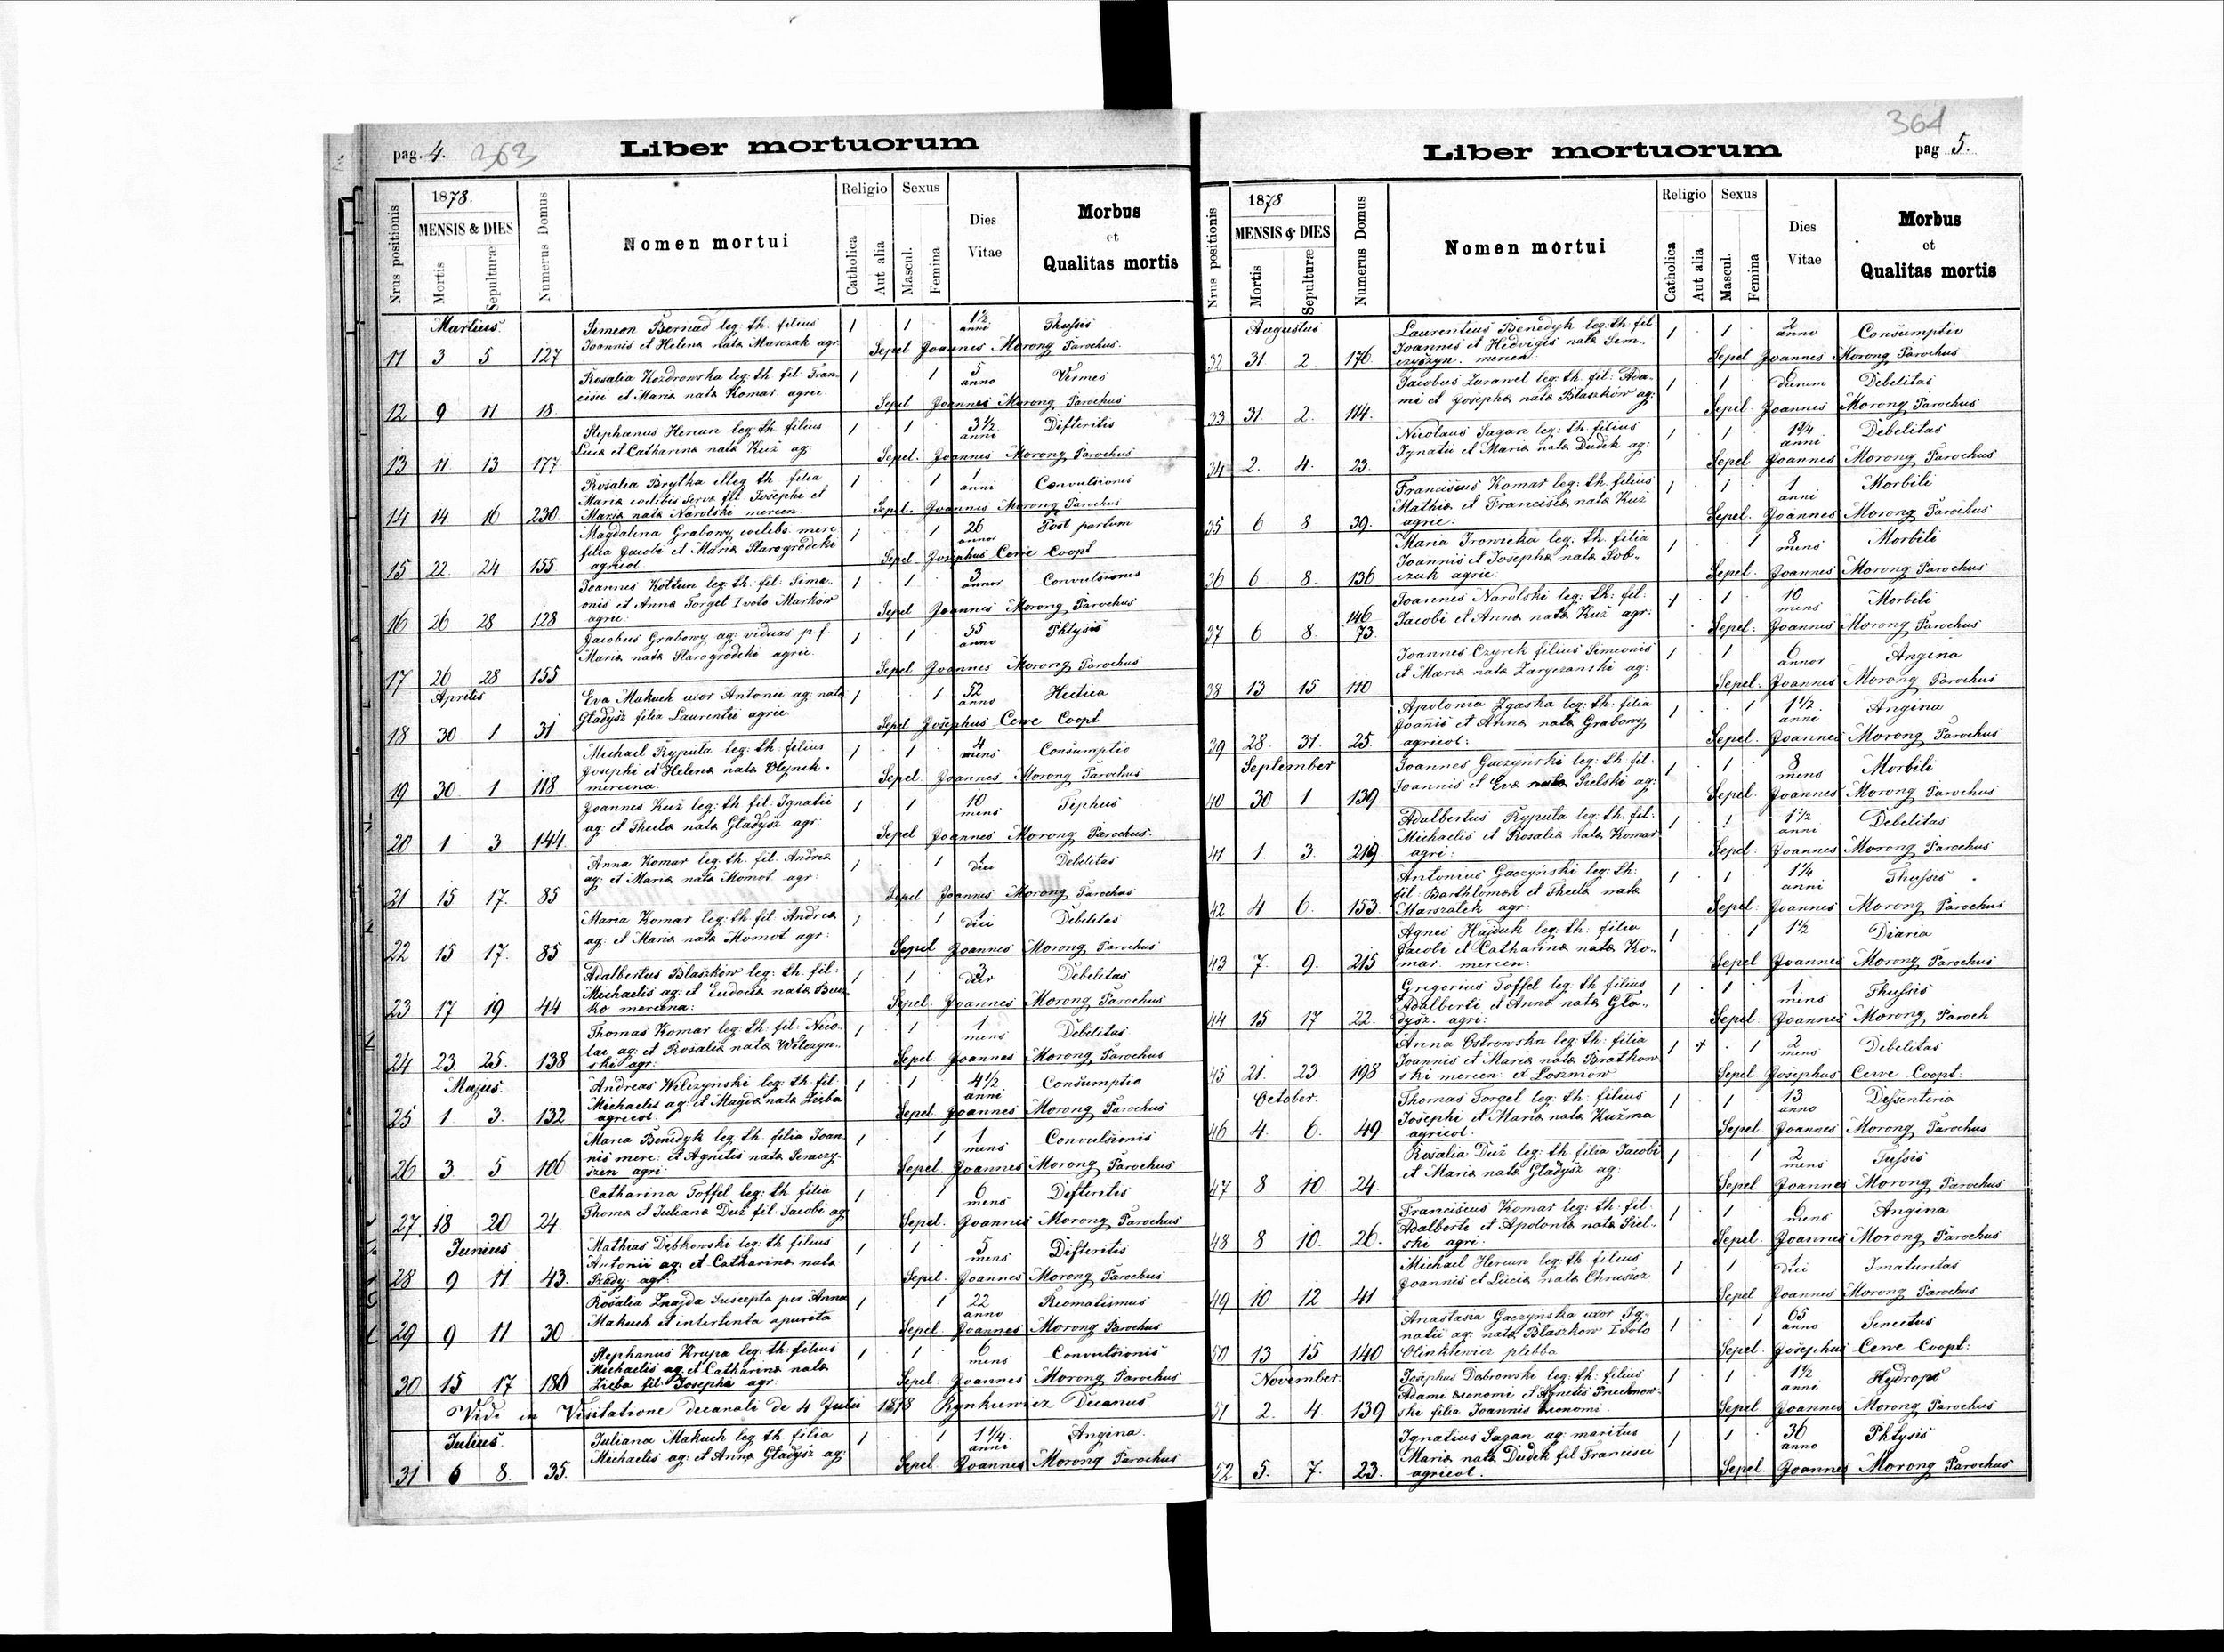 pag. 4. 363 Liber mortuorum
Nrus positionis
1878.
MENSIS & DIES
Mortis
Sepulturæ
Numerus Domus
Nomen mortui
Religio
Catholica
Aut alia
Sexus
Mascul.
Femina
Dies
Vitae
Morbus
et
Qualitas mortis
Martius Simeon Bernad leg. th. filius 1 1 1½ anni Thussis
11 3 5 127 Joannis et Helena nata Marszak agr. Sepel Joannes Morong Parochus
Rosalia Kozdrowska leg. th. fil: Fran- 1 1 5 anno Vermes
12 9 11 18 cisci et Maria nata Komar agric. Sepel Joannes Morong Parochus
Stephanus Hercun leg: th. filius 1 1 3½ anni Difteritis
13 11 13 177 Luca et Catharina nata Kuž ag: Sepel. Joannes Morong Parochus
Rosalia Brytka illeg th filia 1 1 1 anni Convulsiones
Maria coelibis serva fil Josephi et
14 14 16 230 Maria nata Narolski mercen: Sepel. Joannes Morong Parochus
Magdalena Grabowy coelebs. merc 1 1 26 annor Post partum
filia Jacobi et Maria Starogrodcki
15 22 24 155 agricol Sepel Josephus Cerve Coopt
Joannes Kottun leg: th. fil: Sime- 1 1 3 annor Convulsiones
onis et Anna Torgel I voto Markow
16 26 28 128 agric. Sepel Joannes Morong Parochus
Jacobus Grabowy ag: viduus p. f. 1 1 55 anno Phtysis
Maria nata Starogrodcki agric.
17 26 28 155 Sepel Joannes Morong Parochus
Aprilis Eva Makuch uxor Antonii ag: nata 1 1 52 anno Hectica
18 30 1 31 Gładysz filia Laurentii agric. Sepel Josephus Cerve Coopt
Michael Rypuła leg: th. filius 1 1 4 mens Consumptio
Josephi et Helena nata Olejnik.
19 30 1 118 mercena. Sepel Joannes Morong Parochus
Joannes Kuž leg: th fil: Ignatii 1 1 10 mens Tiphus
20 1 3 144 ag: et Thecla nata Gładysz agr: Sepel Joannes Morong Parochus
Anna Komar leg: th. fil. Andrea 1 1 1 diei Debelitas
ag: et Maria nata Momot agr:
21 15 17. 85 Sepel Joannes Morong Parochus
Maria Komar leg: th fil. Andrea 1 1 1 diei Debelitas
ag: et Maria nata Momot agr:
22 15 17. 85 Sepel Joannes Morong Parochus
Adalbertus Błaszkow leg: th. fil: 1 1 3 dier Debelitas
Michaelis ag: et Eudocia nata Buz-
23 17 19 44 ko mercena: Sepel. Joannes Morong Parochus
Thomas Komar leg: th. fil: Nico- 1 1 1 mens Debelitas
lai ag: et Rosalia nata Wilczyn-
24 23 25. 138 ski agr: Sepel Joannes Morong Parochus
Majus. Andreas Wilczynski leg: th fil. 1 1 4½ anni Consumptio
Michaelis ag: et Magda nata Zieba
25 1 3. 132 agricol: Sepel Joannes Morong Parochus
Maria Benedyk leg: th. filia Joan- 1 1 1 mens Convulsionis
nis merc: et Agnetis nata Semczy-
26 3 5 106 szen agri: Sepel. Joannes Morong Parochus
Catharina Toffel leg: th filia 1 1 6 mens Difteritis
27. 18 20 24. Thoma et Juliana Duž fil Jacobi ag Sepel. Joannes Morong Parochus
Junius Mathias Dębkowski leg: th filius 1 1 5 mens Difteritis
Antonii ag: et Catharina nata
28 9 11. 43. Szady agr: Sepel. Joannes Morong Parochus
Rosalia Znajda suscepta per Anna 1 1 22 anno Reomatismus
29 9 11 30 Makuch et intertenta a purita Sepel. Joannes Morong Parochus
Stephanus Krupa leg: th: filius 1 1 6 mens Convulsionis
Michaelis ag: et Catharina nata
30 15 17 186 Zieba fil: Josepha agr: Sepel: Joannes Morong Parochus
Vidi in Visitatione decanali de 4 Julii 1878 Rynkiewicz Decanus.
Julius. Juliana Makuch leg th filia 1 1 1¼ anni Angina
31 6 8. 35. Michaelis ag: et Anna Gładysz ag: Sepel Joannes Morong Parochus
364
Liber mortuorum pag 5.
Nrus positionis
1878
MENSIS & DIES
Mortis
Sepulturæ
Numerus Domus
Nomen mortui
Religio
Catholica
Aut alia
Sexus
Mascul.
Femina
Dies
Vitae
Morbus
et
Qualitas mortis
Augustus Laurentius Benedyk leg: th: fil: 1 1 2 anno Consumptio
Joannis et Hedviges nata Sem-
32 31 2 176. czyszyn. mercen: Sepel Joannes Morong Parochus
Jacobus Zurawel leg: th. fil: Ada- 1 1 6 dierum Debelitas
33 31 2. 114. mi et Josepha nata Błaszków ag: Sepel: Joannes Morong Parochus
Nicolaus Sagan leg: th. filius 1 1 1¾ anni Debelitas
34 2. 4. 23. Ignatii et Maria nata Dudek ag: Sepel Joannes Morong Parochus
Franciscus Komar leg: th. filius 1 1 1 anni Morbili
Mathia et Francisca nata Kuž
35 6 8 39. agric: Sepel. Joannes Morong Parochus
Maria Irowicka leg: th. filia 1 1 8 mens Morbili
Joannis et Josepha nata Sob-
36 6 8. 136 czuk agric. Sepel. Joannes Morong Parochus
Joannes Narolski leg: th: fil: 1 1 10 mens Morbili
37 6 8. 146 73. Jacobi et Anna nata Kuž agr: Sepel: Joannes Morong Parochus
Joannes Czyrek filius Simeonis 1 1 6 annor Angina
38 13 15 110 et Maria nata Zaryczanski ag: Sepel: Joannes Morong Parochus
Apolonia Zgaska leg: th. filia 1 1 1½ anni Angina
Joanis et Anna nata Grabowy
39 28 31. 25. agricol: Sepel. Joannes Morong Parochus
September Joannes Gaczyński leg: th. fil. 1 1 8 mens Morbili
40 30 1 139. Joannis et Eva nata Sielski ag: Sepel. Joannes Morong Parochus
Adalbertus Rypuła leg: th. fil: 1 1 1½ anni Debelitas
Michaelis et Rosalia nata Komar
41 1. 3. 219. agri: Sepel: Joannes Morong Parochus
Antonius Gaczyński leg: th: 1 1 1¼ anni Thussis
fil: Barthlomæi et Thecla nata
42 4 6. 153. Marszalek agr: Sepel: Joannes Morong Parochus
Agnes Hajduk leg: th: filia 1 1 1½ Diaria
Jacobi et Catharina nata Ko-
43 7. 9. 215 mar mercen: Sepel Joannes Morong Parochus
Gregorius Toffel leg: th filius 1 1 1 mens Thussis
Adalberti et Anna nata Gła-
44 15 17 22. dysz. agri: Sepel: Joannes Morong Paroch
Anna Ostrowska leg: th: filia 1 + 1 2 mens Debelitas
Joannis et Maria nata Bratkow
45 21. 23. 198 ski mercen: et Loszniow Sepel Josephus Cerve Coopt:
October. Thomas Torgel leg: th: filius 1 1 13 anno Dissenteria
Josephi et Maria nata Kužma
46 4. 6. 49. agricol. Sepel. Joannes Morong Parochus
Rosalia Duž leg: th filia Jacobi 1 1 2 mens Tussis
47 8 10 24. et Maria nata Gładysz ag: Sepel Joannes Morong Parochus
Franciscus Komar leg: th. fil. 1 1 6 mens Angina
Adalberti et Apolonia nata Siel-
48 8 10. 26. ski agri: Sepel. Joannes Morong Parochus
Michael Hercun leg: th: filius 1 1 1 diei Imaturitas
49 10 12 41 Joannis et Lucia nata Chruścz Sepel Joannes Morong Parochus
Anastasia Gaczyńska uxor Ig- 1 1 65 anno Senectus
natii ag: nata Błaszkow I voto
50 13 15 140 Olinkiewicz plebba Sepel. Josephus Cerve Coopt:
November Josephus Dabrowski leg: th: filius 1 1 1½ anni Hydrops
Adami œconomi et Agnetis Pruchnow-
51 2. 4. 139 ski filia Joannis œconomi. Sepel. Joannes Morong Parochus
Ignatius Sagan ag: maritus 1 1 36 anno Phtysis
Maria nata Dudek fil Francisci
52 5. 7. 23. agricol. Sepel. Joannes Morong Parochus